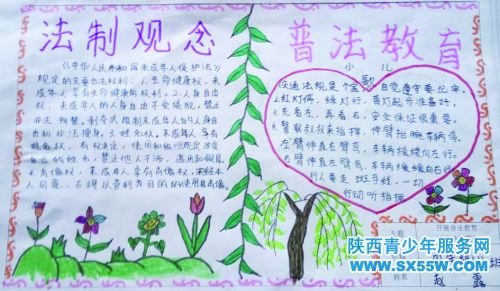 法制观念
《中华人民共和国未成年人保护法》
规定的主要合法权利：1.生命健康权，未
成年人享有生命健康的权利。2.人身自由
权，未成年人的人身自由不受侵规，禁止
非法拘禁，剥夺或限制未成年人的人身自
由和非法搜身。3.姓名权，未成年人享有
姓名权，有权决定，使用和依照规定改变
自己的姓名，禁止他人干涉，盗用和假冒。
4.肖像权，未成年人享有肖像权，未经本人
同意，不得以营利为目的的使用其肖像。
普法教育
小儿
歌
交通法规是个宝，自觉遵守要记牢。
2.红灯停，绿灯行，黄灯起步准备好。
3.先看左，再看右，安全保证很重要。
4.警察叔叔来指挥，伸臂抬腕车辆停。
左臂伸直右臂弯，车辆缓缓向左行。
右臂伸直左臂弯，车辆缓缓向右行。
行人要走斑马线，一切
行动听指挥
主题
开展普法教育
班级
班
姓名
赵露
陕西青少年服务网
www.sx55w.com